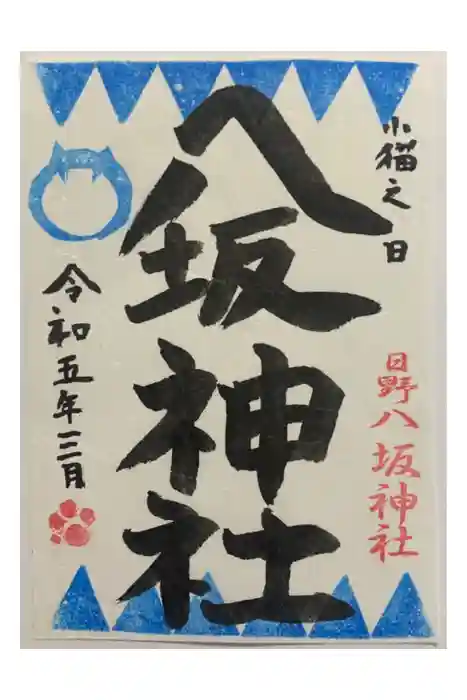 小猫之日
八坂神社
日野八坂神社
令和五年三月